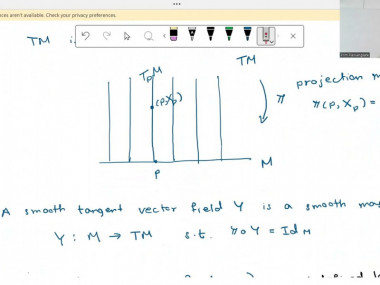 aces aren't available. Check your privacy preferences.
TM
TₚM
TM
(p,Xₚ)
π
projection m
π(p, Xₚ) =
p
M
A smooth tangent vector field Y is a smooth ma
Y : M → TM s.t. π∘Y = Id_M